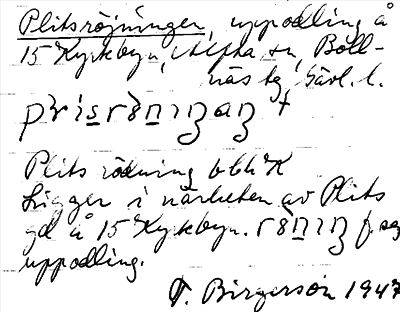 Plitsröjningen, uppodling å
15 Kyrkbyn, Alfta sn, Boll-
näs tg, Gävl. l.
Plits rödning bbhK
Ligger i närheten av Plits
gd å 15 Kyrkbyn. f. sg
uppodling.
T. Birgersson 1947